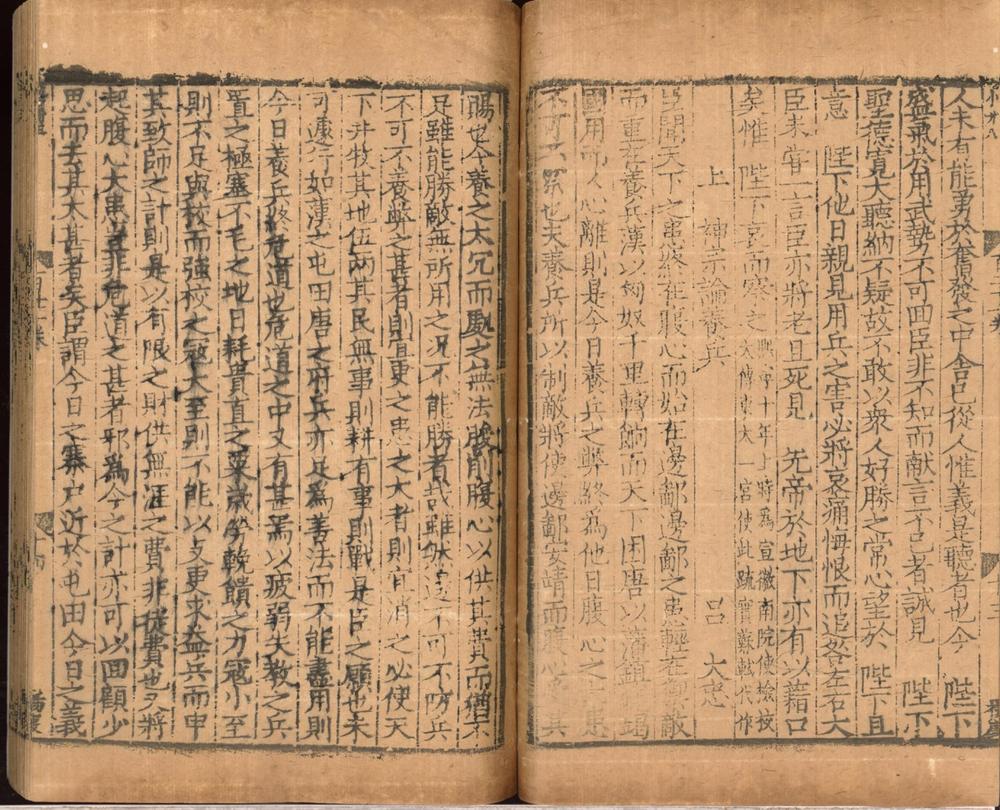 人未有能勇於奮發之中舍己從人惟義是聽者也今 陛下
盛氣於用武勢不可回臣非不知而献言不已者誠見 陛下
聖德寛大聽納不疑故不敢以衆人好勝之常心望於 陛下且
意 陛下他日親見用兵之害必將哀痛悔恨而追咎左右大
臣未嘗一言臣亦將老且死見 先帝於地下亦有以藉口
矣惟 陛下哀而察之 熙寧十年上時爲宣徽南院使檢校
太傅東太一宮使此疏實蘇軾代作
上 神宗論養兵 吕 大忠
臣聞天下之患終在腹心而始在邊鄙邊鄙之患輕在禦敵
而重在養兵漢以匈奴千里轉餉而天下困唐以藩鎮 竭
國用而人心離則是今日養兵之弊終為他日腹心之 患
不可不 也夫養兵所以制敵將使邊鄙安靖而腹心 其
賜也今養之太冗而馭之無法朘削腹心以供其費而猶
足雖能勝敵無所用之况不能勝者哉雖然 不可不防兵
不可不養弊之甚者則宜更之患之大者則宜消之必使天
下井牧其地伍兩其民無事則耕有事則戰是臣之願也未
可遽行如漢之屯田唐之府兵亦足為善法而不能盡用則
今日養兵終危道也危道之中又有甚焉以疲弱失教之兵
置之極塞不毛之地日耗貴直之粟歳勞輓饋之力寇小至
則不足與校而強校之寇大至則不能以支更求益兵而申
其致師之計則是以有限之財供無涯之費非徒費也又將
起腹心大患豈非危道之甚者邪為今之計亦可以回顧少
思而去其太甚者矣臣謂今日之寨户近於屯田今日之義